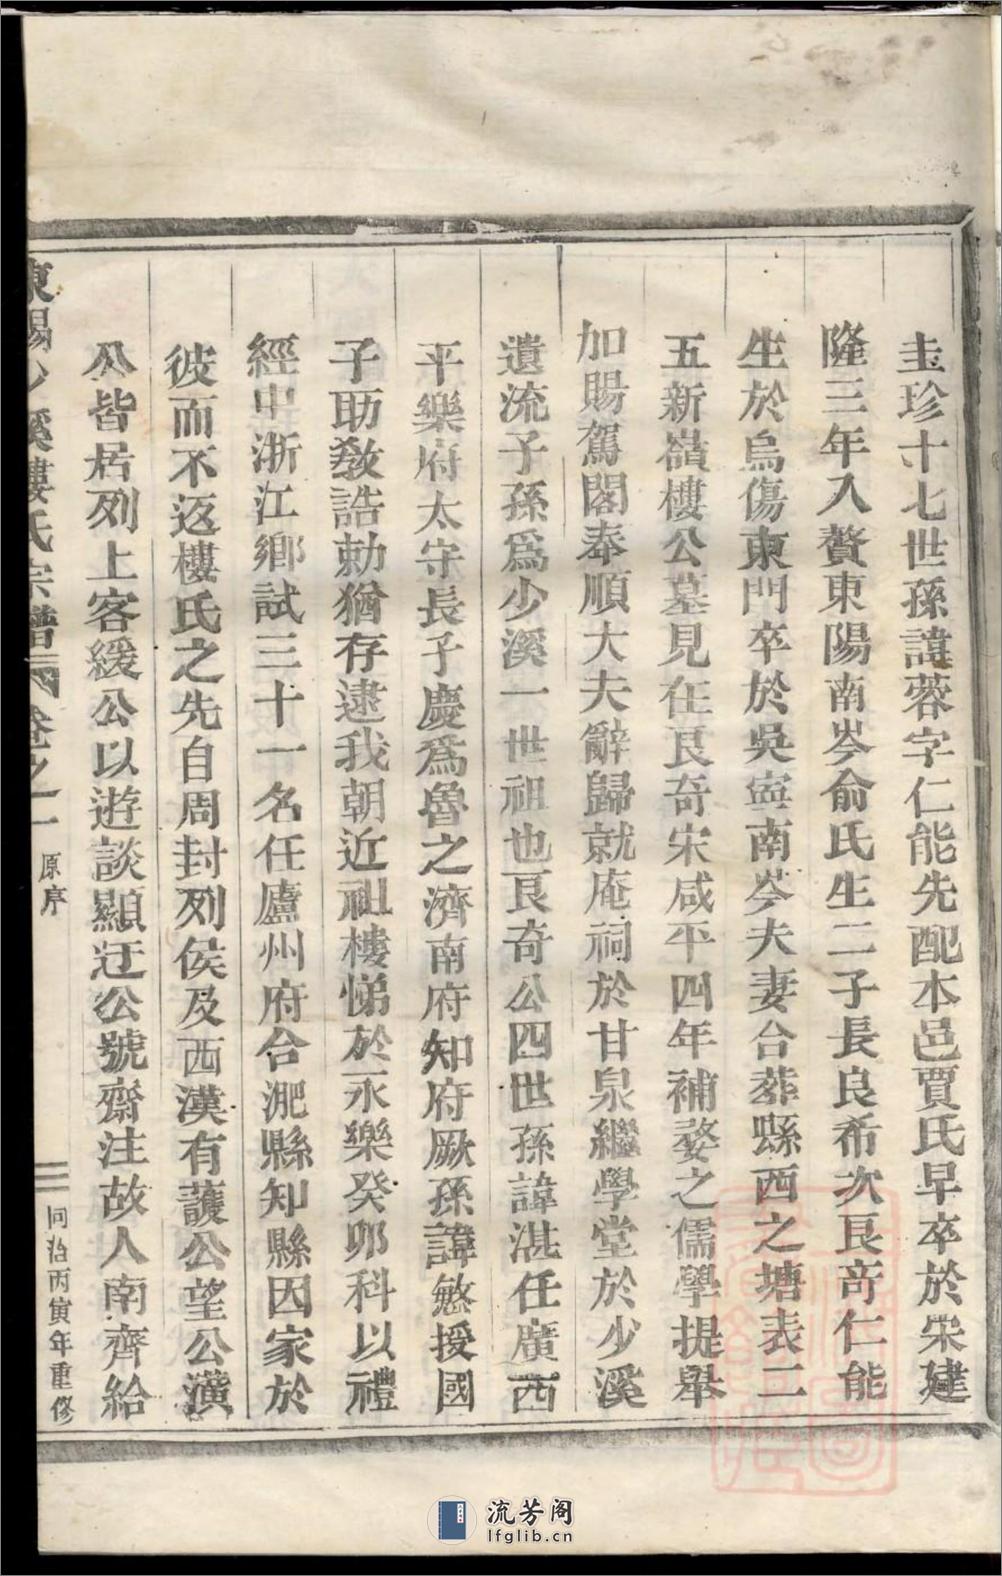 圭珍十七世孫諱蓉字仁能先配本邑賈氏早卒於宋建
隆三年入贅東陽南岑俞氏生二子長良希次艮奇仁能
生於烏傷東門卒於吳寧南岑夫妻合葬縣西之塘表二
五新嶺樓公墓見在艮奇宋咸平四年補婺之儒學提舉
加賜駕閣奉順大夫辭歸就庵祠於甘泉繼學堂於少溪
遺流子孫爲少溪一世祖也艮奇公四世孫諱湛任廣西
平樂府太守長子慶爲魯之濟南府知府厥孫諱慜援國
子助敎誥勅猶存逮我朝近祖樓悌於永樂癸卯科以禮
經中浙江鄉試三十一名任廬州府合淝縣知縣因家於
彼而不返樓氏之先自周封列侯及西漢有護公望公瀇
公皆居列上客緩公以遊談顯迋公號齋注故人南齊給
東陽少溪樓氏宗譜 卷之一 原序 三 同治丙寅年重修
流芳阁
lfglib.cn